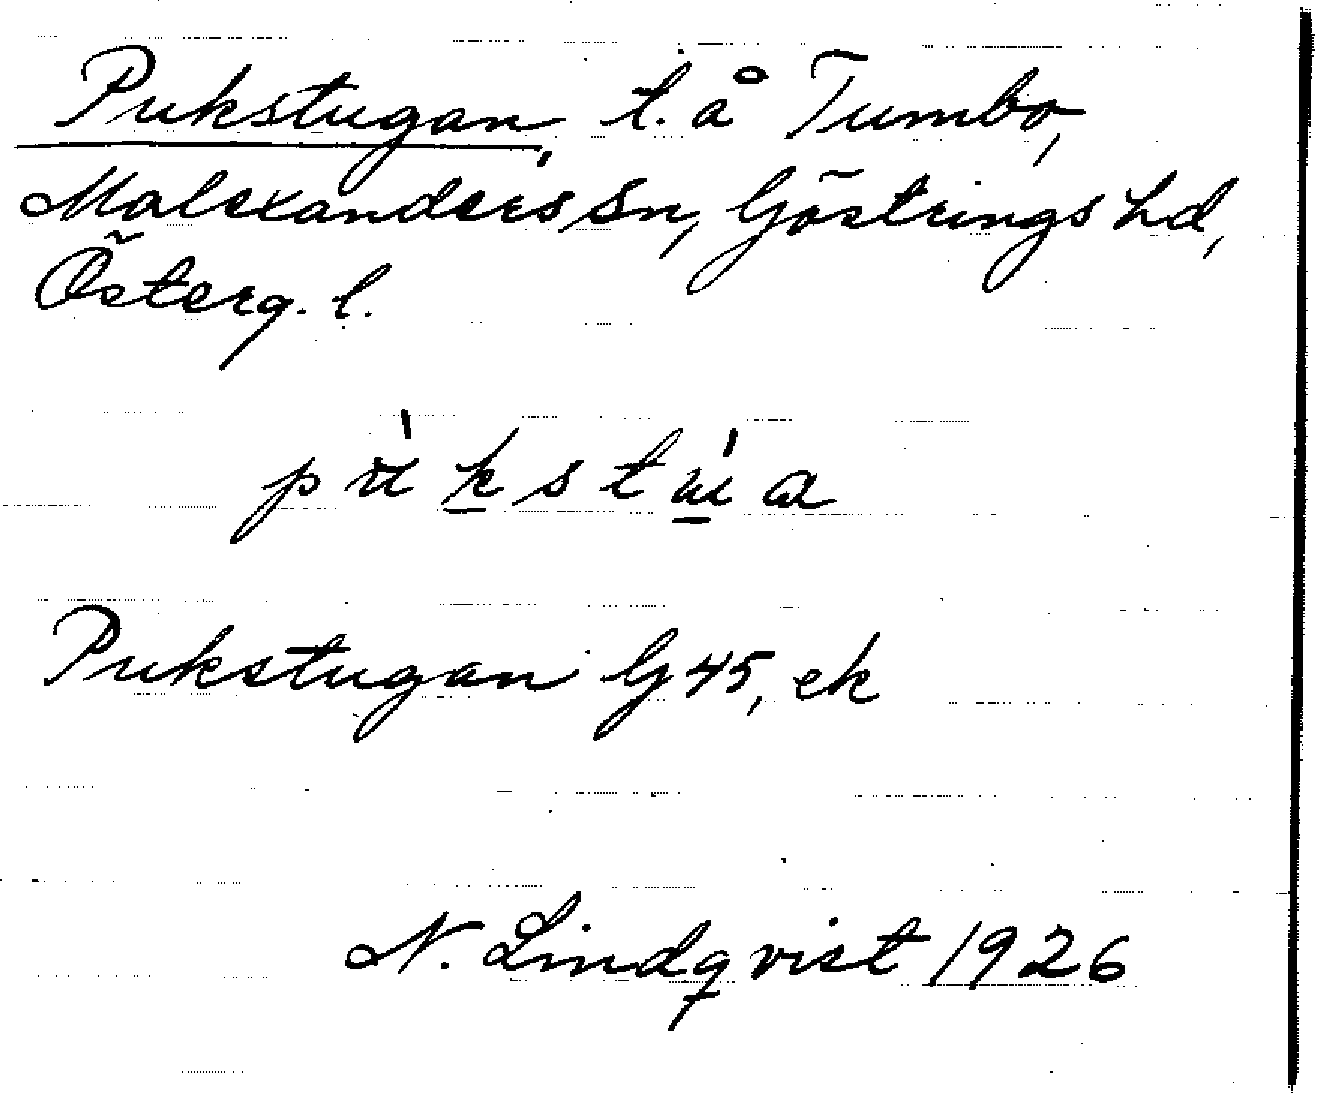 Pukstugan, t. å Tumbo,
Malexanders sn, Göstrings hd,
Österg. l.
pùkstúa
Pukstugan G 45, ek
N. Lindqvist 1926